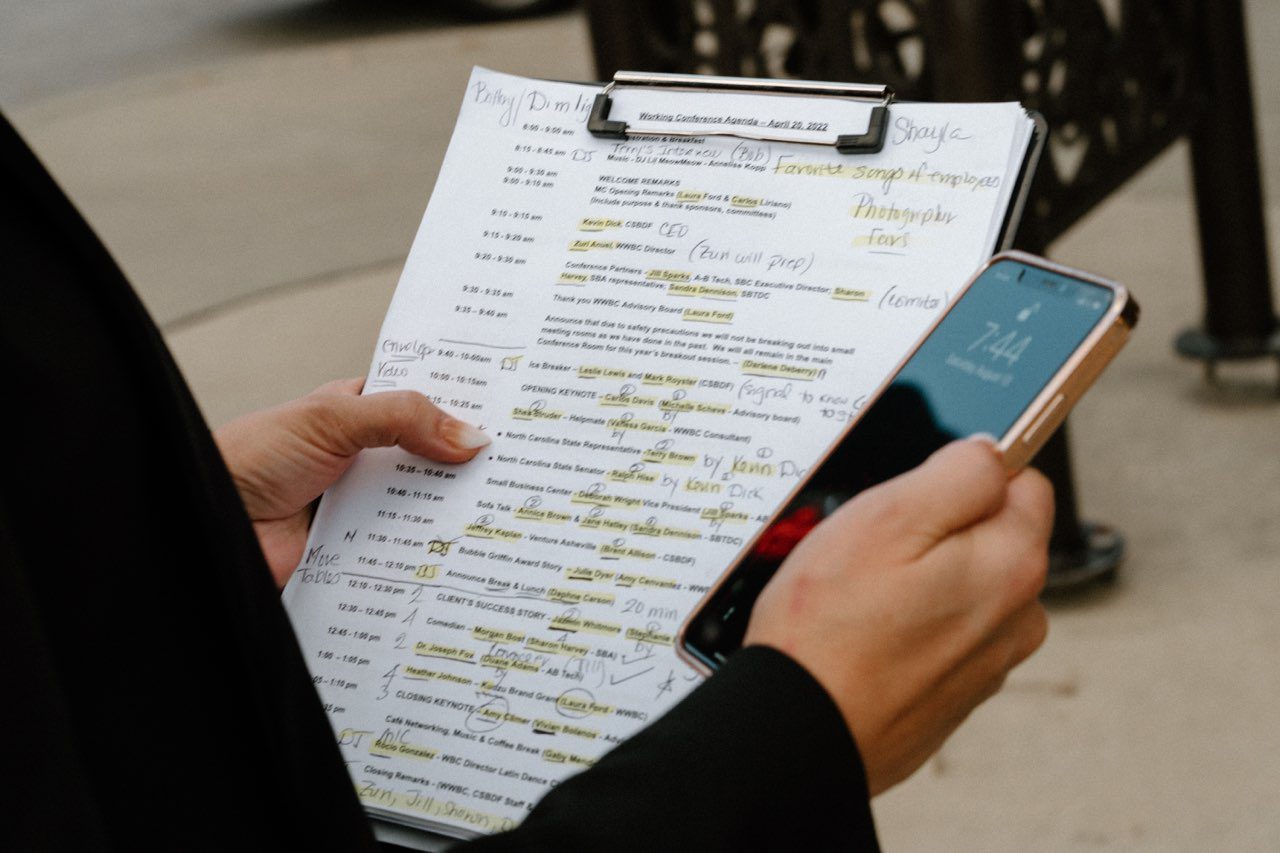 Working Conference Agenda – April 20, 2022
Shayla
8:00 - 9:00 am
& Breakfast
8:15 - 8:45 am DJ Terry's Interview (Bob)
Music - DJ Lil MeowMeow - Annelise Kopp
Favorite songs of employees
9:00 - 9:30 am WELCOME REMARKS
9:00 - 9:10 am MC Opening Remarks (Laura Ford & Carlos Liriano)
(Include purpose & thank sponsors, committees)
Photographer
9:10 - 9:15 am Kevin Dick, CSBDF CEO
9:15 - 9:20 am Zuri Anuel, WWBC Director (Zuri will prep)
9:20 - 9:30 am Conference Partners - Jill Sparks, A-B Tech, SBC Executive Director; Sharon
Harvey, SBA representative; Sandra Dennison, SBTDC
9:30 - 9:35 am Thank you WWBC Advisory Board (Laura Ford)
9:35 – 9:40 am Announce that due to safety precautions we will not be breaking out into small
meeting rooms as we have done in the past. We will all remain in the main
Conference Room for this year's breakout session. – (Darlene Deberry)
9:40 - 10:00am DJ Ice Breaker – Leslie Lewis and Mark Royster (CSBDF) (signal to know
Video
10:00 - 10:15am OPENING KEYNOTE – Carlos Davis (Michelle Scheve - Advisory board)
10:25 am Shea Bruder - Helpmate (Vanessa Garcia - WWBC Consultant)
by
• North Carolina State Representative - Terry Brown by Kevin Dick
• North Carolina State Senator - Ralph Hise by Kevin Dick
10:35 - 10:40 am Small Business Center - Deborah Wright Vice President (Jill Sparks - AB
10:40 - 11:15 am Sofa Talk - Annice Brown & Jane Hatley (Sandra Dennison - SBTDC)
11:15 - 11:30 am Jeffrey Kaplan - Venture Asheville (Brent Allison - CSBDF)
11:30 - 11:45 am DJ Bubble Griffin Award Story - Julie Dyer (Amy Cervantez - WW
Move
Tables
11:45 – 12:10 pm DJ Announce Break & Lunch (Daphne Carson)
12:10 - 12:30 pm 2 CLIENT'S SUCCESS STORY - Jazmin Whitmore 20 min
12:30 - 12:45 pm 4 Comedian – Morgan Bost (Sharon Harvey - SBA)
12:45 - 1:00 pm 2 Dr. Joseph Fox (Duane Adams - AB Tech) (Jill)
1:00 – 1:05 pm 4 Heather Johnson - Kudzu Brand (Laura Ford - WWBC)
05 - 1:10 pm 3 CLOSING KEYNOTE – Amy Climer (Vivian Bolanos - Adv
Café Networking, Music & Coffee Break (Gaby
DJ MC Rocio Gonzalez - WBC Director Latin Dance
Closing Remarks - (WWBC, CSBDF Staff &
Zuri, Jill, Sharon,
7:44